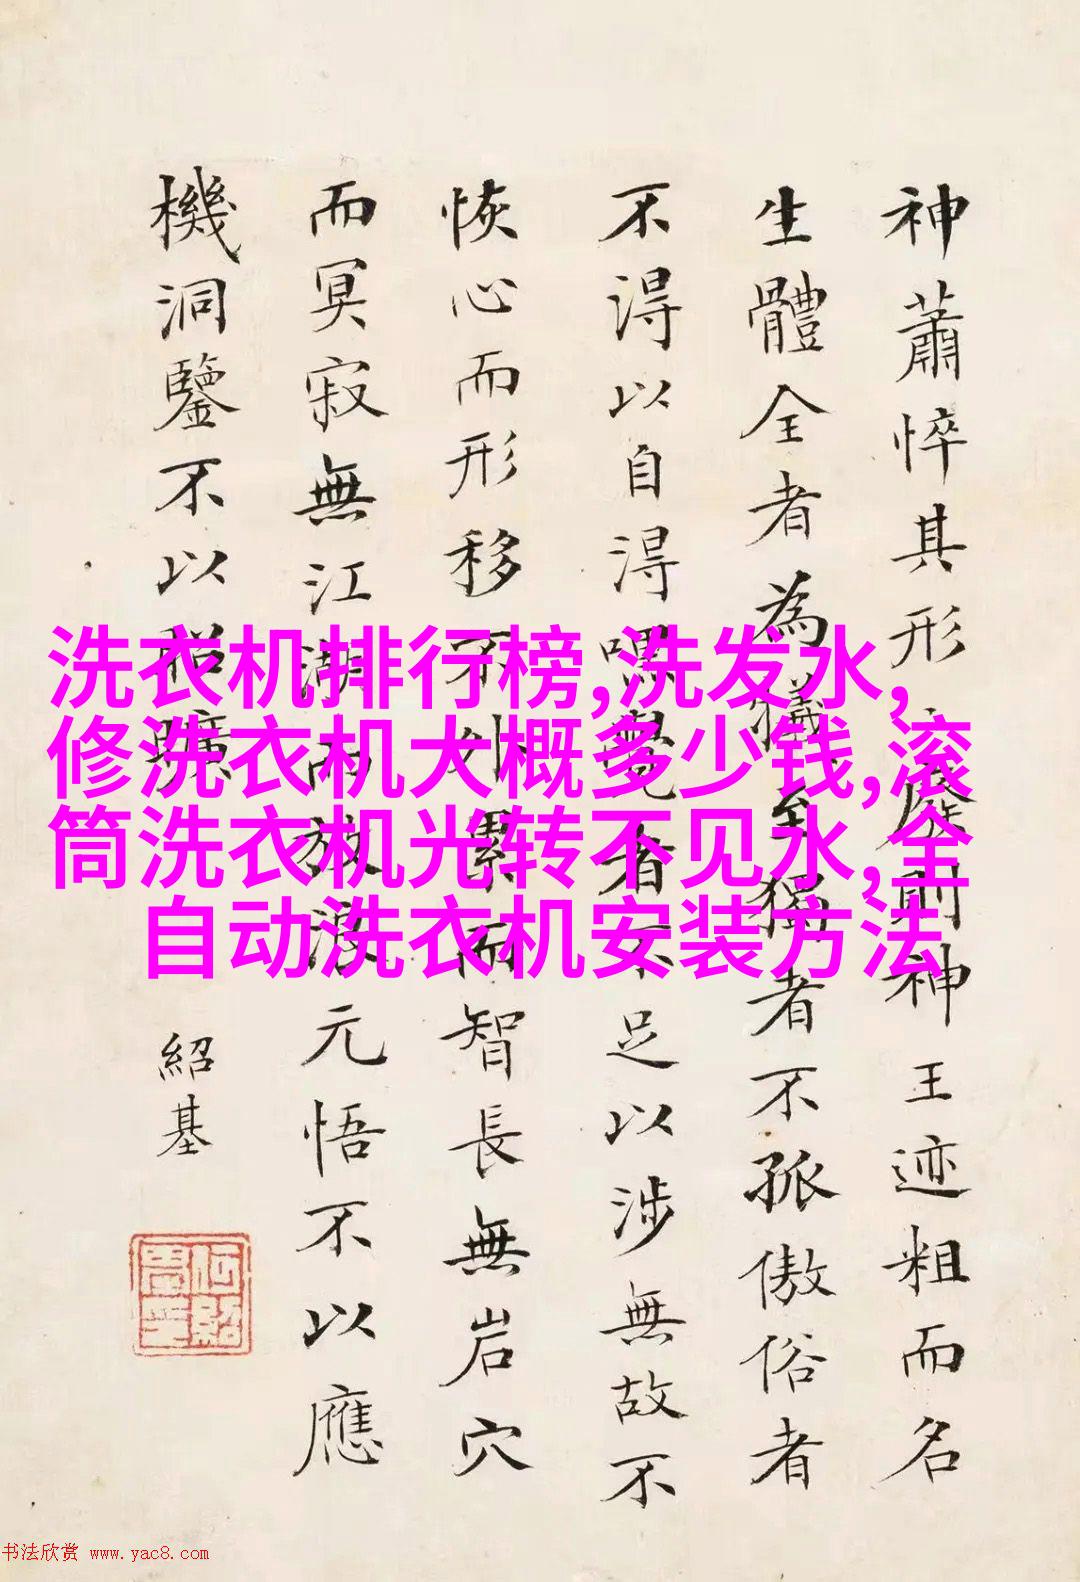 神蕭悴其形廢則神王迹粗而名
生體全者為犧至獨者不孤傲俗者
不得以自得嘿覺者不足以涉無故不
恢心而形移不外累而智長無岩穴
而冥寂無江湖而放浪元悟不以應
機洞鑒不以昭曠
紹基
洗衣机排行榜,洗发水,
修洗衣机大概多少钱,滚
筒洗衣机光转不见水,全
自动洗衣机安装方法
书法欣赏 www.yac8.com